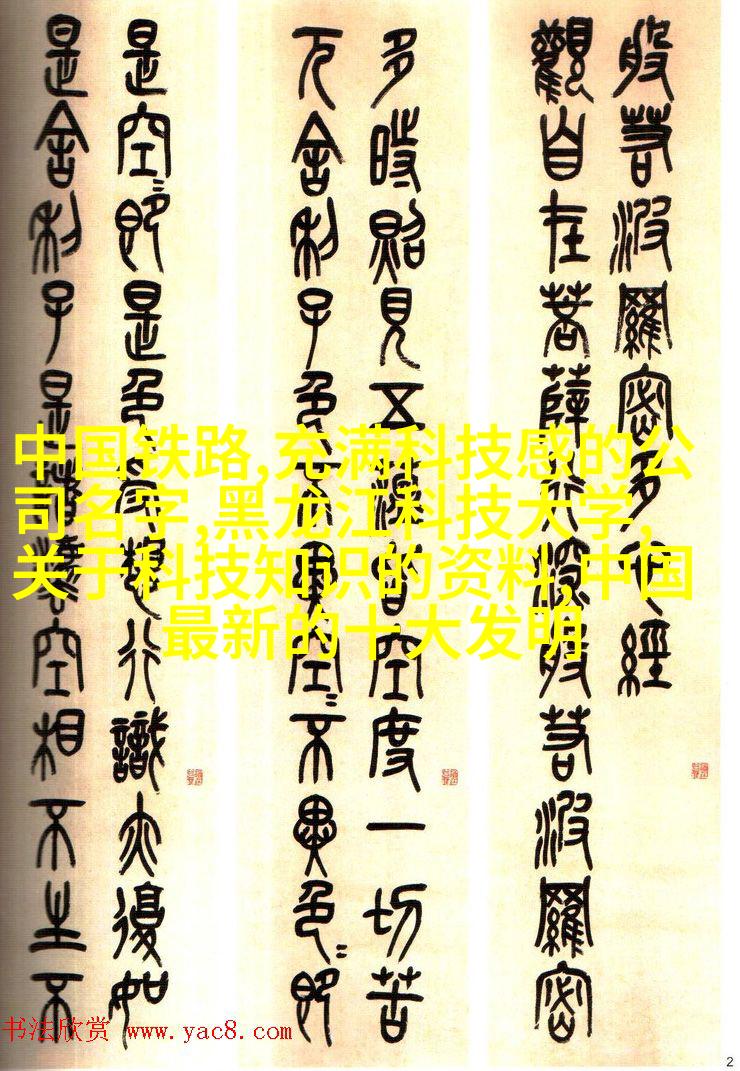 般若波羅密多心經
觀自在菩薩行深般若波羅密
多時照見五蘊皆空度一切苦
厄舍利子色不異空〻不異色〻即
是空〻即是色受想行識亦復如
是舍利子是諸法空相不生不
中国铁路,充满科技感的公
司名字,黑龙江科技大学,
关于科技知识的资料,中国
最新的十大发明
书法欣赏 www.yac8.com
2